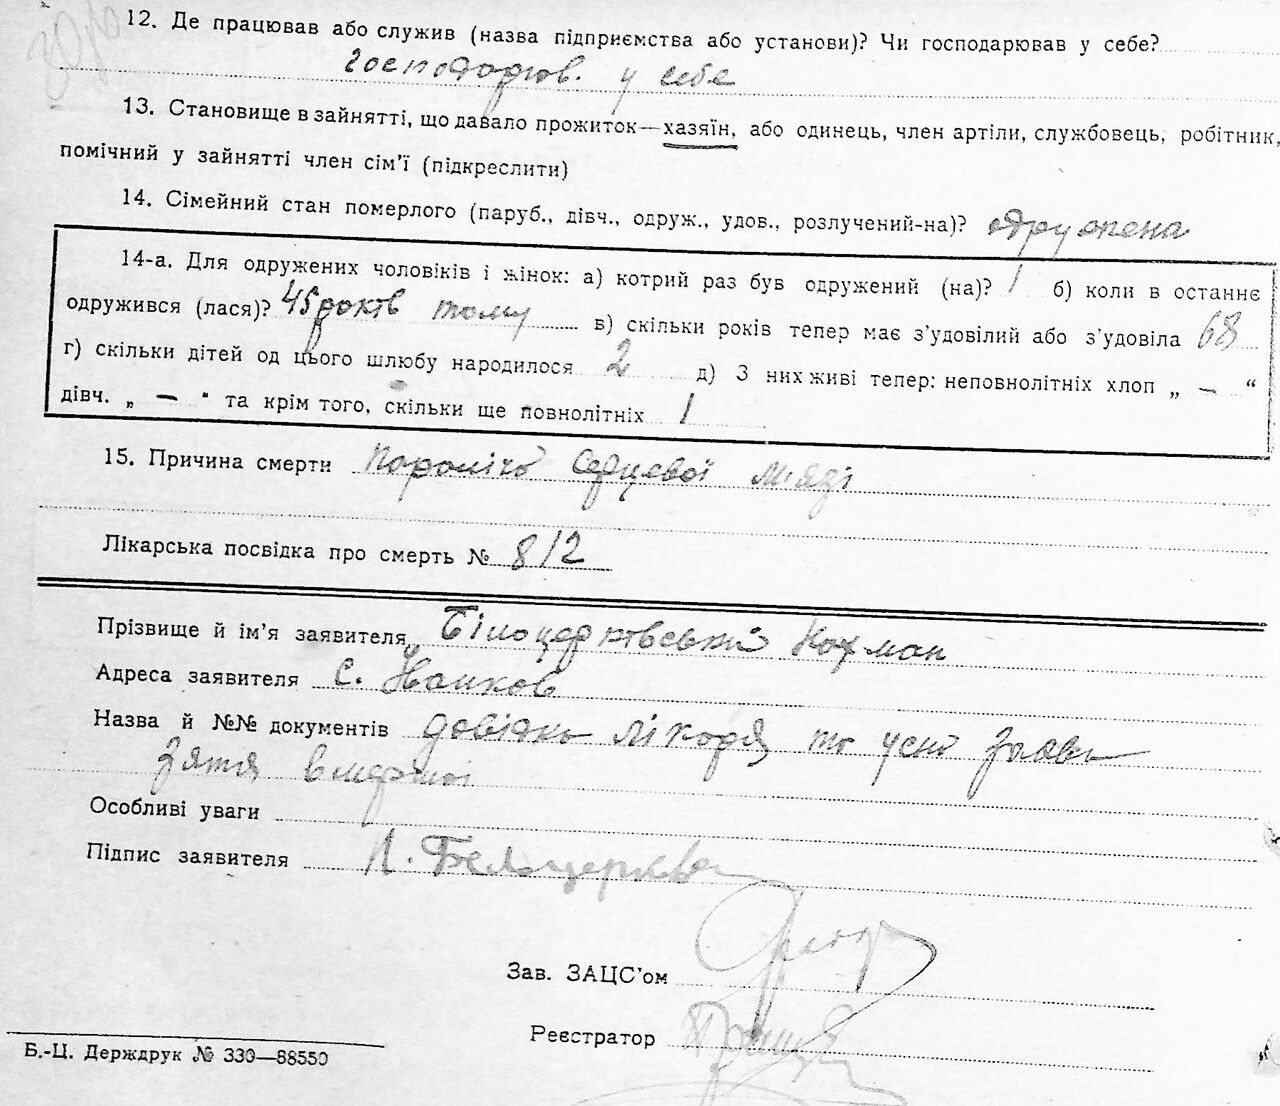 12. Де працював або служив (назва підприємства або установи)? Чи господарював у себе?
господарюв. у себе
13. Становище в зайнятті, що давало прожиток—хазяїн, або одинець, член артіли, службовець, робітник,
помічний у зайнятті член сім'ї (підкреслити)
14. Сімейний стан померлого (паруб., дівч., одруж., удов., розлучений-на)? одружена
14-а. Для одружених чоловіків і жінок: а) котрий раз був одружений (на)? 1 б) коли в останнє
одружився (лася)? 45 років тому в) скільки років тепер має з'удовілий або з'удовіла 68
г) скільки дітей од цього шлюбу народилося 2 д) З них живі тепер: неповнолітніх хлоп „ — “
дівч. „ — “ та крім того, скільки ще повнолітніх 1
15. Причина смерти параліч серцевої
Лікарська посвідка про смерть № 812
Прізвище й ім'я заявителя Білоцерківський Нахман
Адреса заявителя с.
Назва й №№ документів довідка лікаря та усна заява
зятя вмершої
Особливі уваги
Підпис заявителя
Зав. ЗАЦС'ом
Реєстратор
Б.-Ц. Держдрук № 330—88550